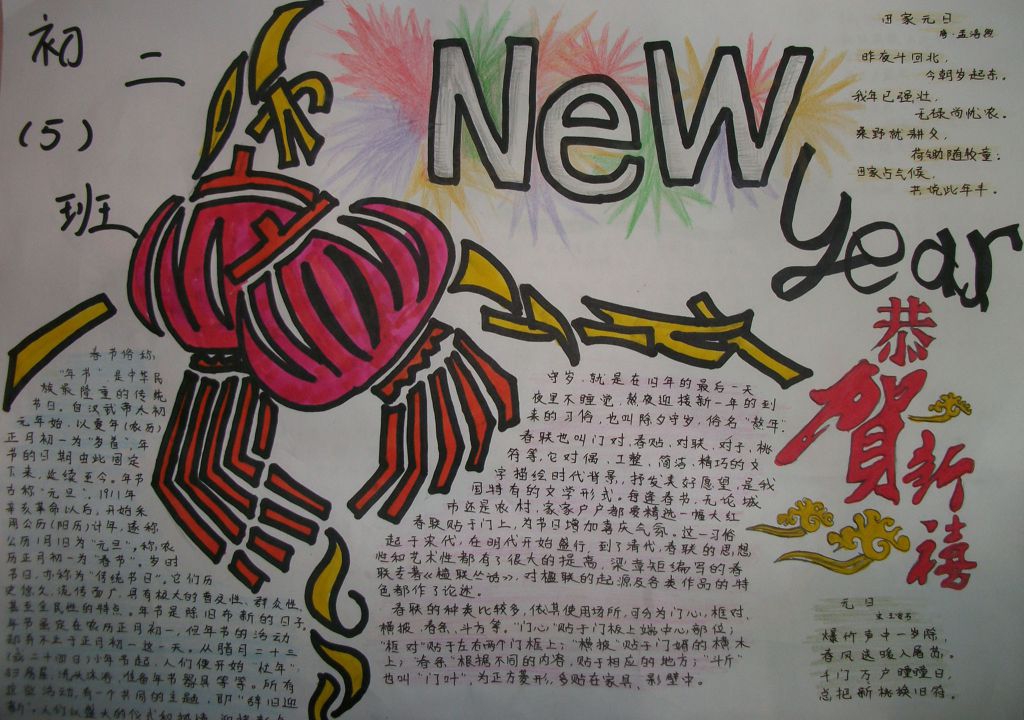 初二
(5)
班
New
Year
恭
贺
新
禧
田家元日
唐·孟浩然
昨夜斗回北，
今朝岁起东。
我年已强壮，
无禄尚忧农。
桑野就耕父，
荷锄随牧童。
田家占气候，
共说此年丰。
春节俗称，
"年节"是中华民
族最隆重的传统
节日。自汉武帝太初
元年始，以夏年(农历)
正月初一为"岁首"，年
节的日期由此固定
下来，延续至今。年节
古称"元旦"。1911年
辛亥革命以后，开始采
用公历(阳历)计年，遂称
公历1月1日为"元旦"，称农
历正月初一为"春节"。岁时
节日，亦称为"传统节日"。它们历
史悠久，流传面广，具有极大的普及性、群众性，
甚至全民性的特点。年节是除旧布新的日子。
年节虽定在农历正月初一，但年节的活动
却并不止于正月初一这一天。从腊月二十三
(或二十四日)小年节起，人们便开始"忙年"：
扫房屋，洗头沐浴，准备年节器具等等。所有
这些活动，有一个共同的主题，即"辞旧迎
守岁，就是在旧年的最后一天
夜里不睡觉，熬夜迎接新一年的到
来的习俗，也叫除夕守岁，俗名"熬年"。
春联也叫门对，春贴，对联，对子，桃
符等，它对偶、工整，简洁，精巧的文
字描绘时代背景，抒发美好愿望，是我
国特有的文学形式。每逢春节，无论城
市还是农村，家家户户都要精选一幅大红
春联贴于门上，为节日增加喜庆气氛。这一习俗
起于宋代，在明代开始盛行，到了清代，春联的思想
性和艺术性都有了很大的提高，梁章矩编写的春
联专著《楹联丛话》，对楹联的起源及各类作品的特
色都作了论述。
春联的种类比较多，依其使用场所，可分为门心，框对，
横披，春条，斗方等。"门心"贴于门板上端中心部位；
"框对"贴于左右两个门框上；"横披"贴于门楣的横木
上；"春条"根据不同的内容，贴于相应的地方；"斗斤"
也叫"门叶"，为正方菱形，多贴在家具，影壁中。
元日
爆竹声中一岁除，
春风送暖入屠苏。
千门万户曈曈日，
总把新桃换旧符。